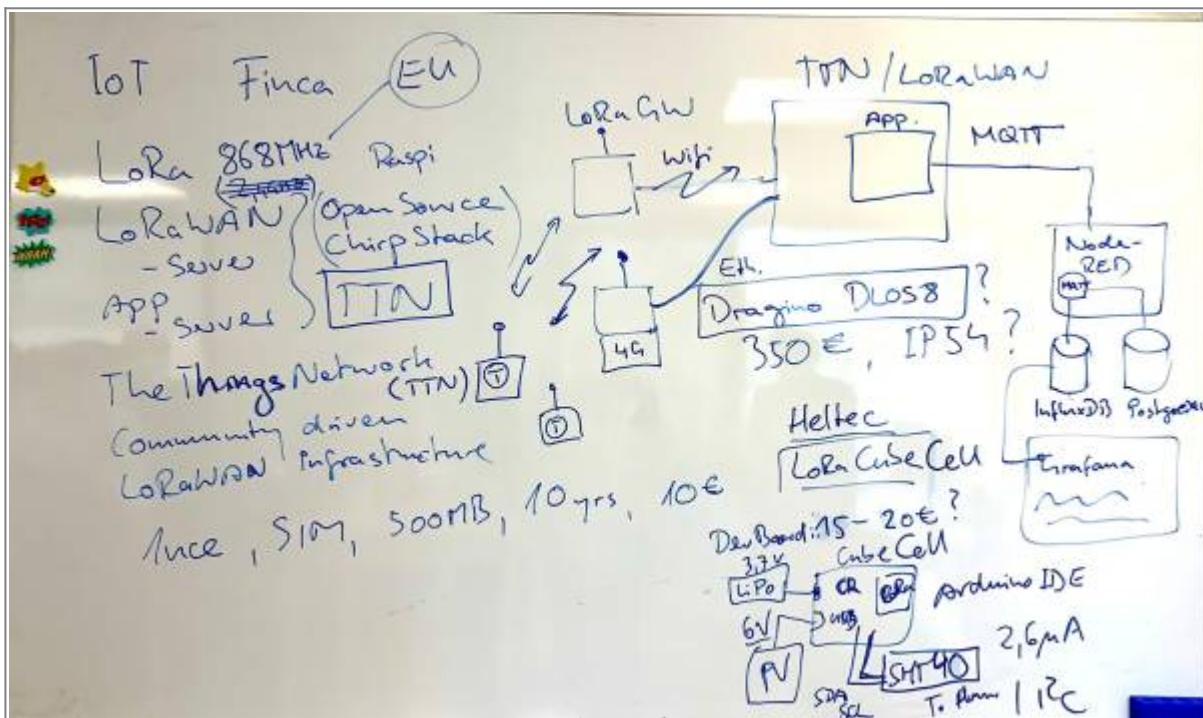 IoT Finca EU
LoRa 868MHz Raspi
LoRaWAN
- Server
App
- Server
(Open Source
ChirpStack)
TTN
The Things Network
(TTN)
Community driven
LoRaWAN infrastructure
1nce, SIM, 500MB, 10yrs, 10€
LoRa GW
Wifi
4G
Eth.
T
T
TTN/LoRaWAN
App.
MQTT
Dragino DLOS8 ?
350€, IP54?
Node-
RED
InfluxDB
Grafana
Heltec
LoRa CubeCell
Dev Board: 15-20€?
CubeCell
3,7V
LiPo
LoRa
Arduino IDE
6V
USB
PV
SHT40
2,6µA
SDA
SCL
I²C